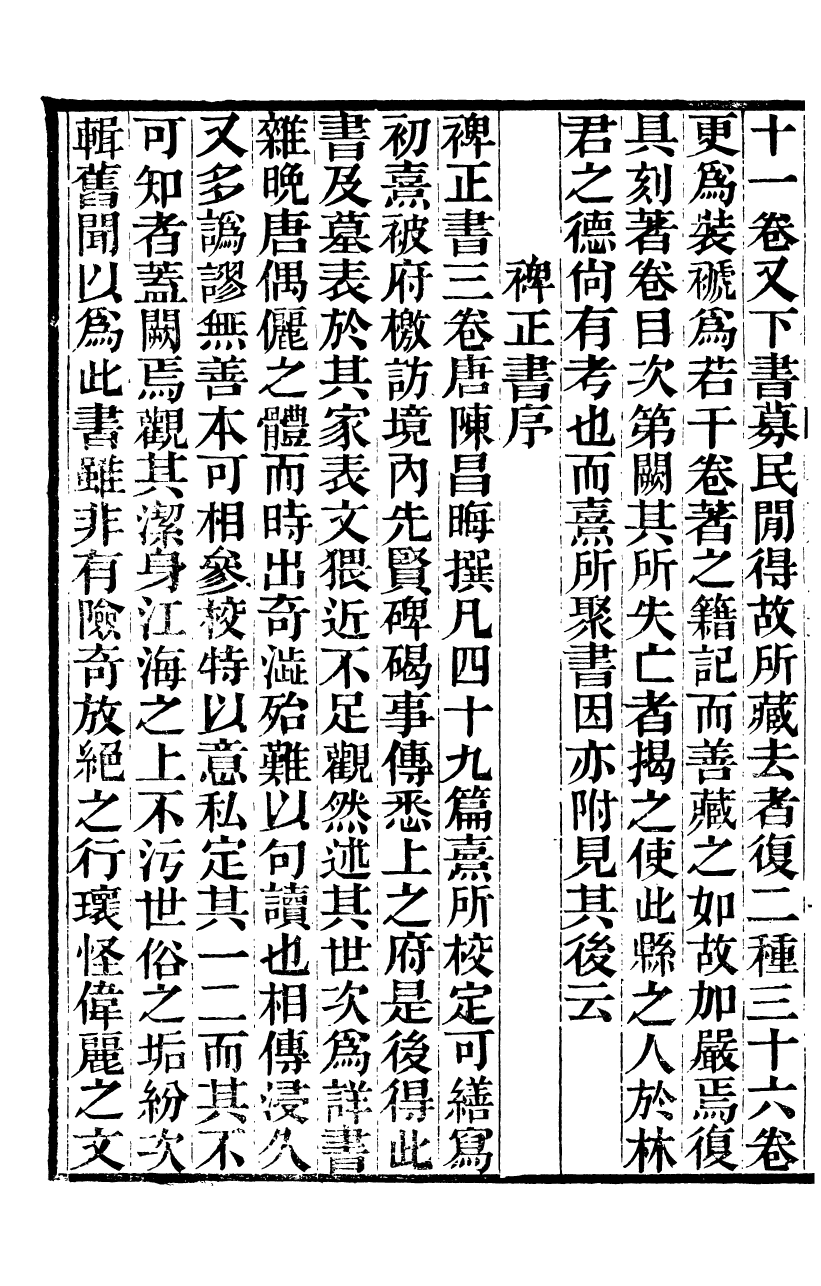 十一卷又下書募民閒得故所藏去者復二種三十六卷
更爲裝褫爲若干卷著之籍記而善藏之如故加嚴焉復
具刻著卷目次第闕其所失亡者揭之使此縣之人於林
君之德尙有考也而熹所聚書因亦附見其後云
裨正書序
裨正書三卷唐陳昌晦撰凡四十九篇熹所校定可繕寫
初熹被府檄訪境內先賢碑碣事傳悉上之府是後得此
書及墓表於其家表文猥近不足觀然述其世次爲詳書
雜晚唐偶儷之體而時出奇澁殆難以句讀也相傳浸久
又多譌謬無善本可相參校特以意私定其一二而其不
可知者蓋闕焉觀其潔身江海之上不污世俗之垢紛次
輯舊聞以爲此書雖非有險奇放絕之行瓌怪偉麗之文